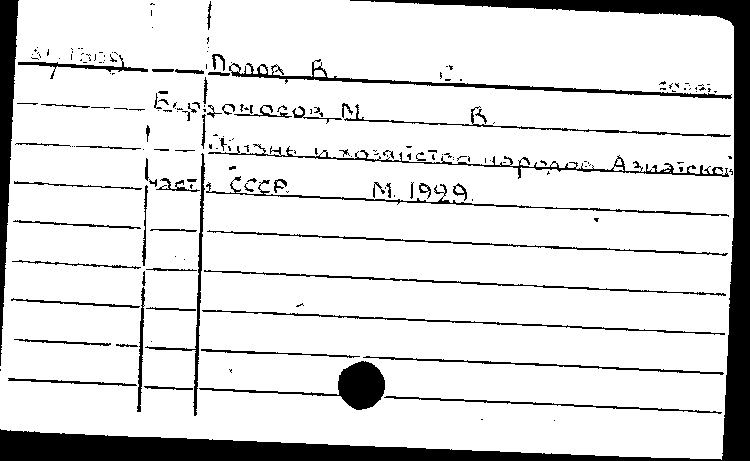 Попов, В. С.
Бердоносов, М. В.
Жизнь и хозяйство народов Азиатской
части СССР М., 1929.